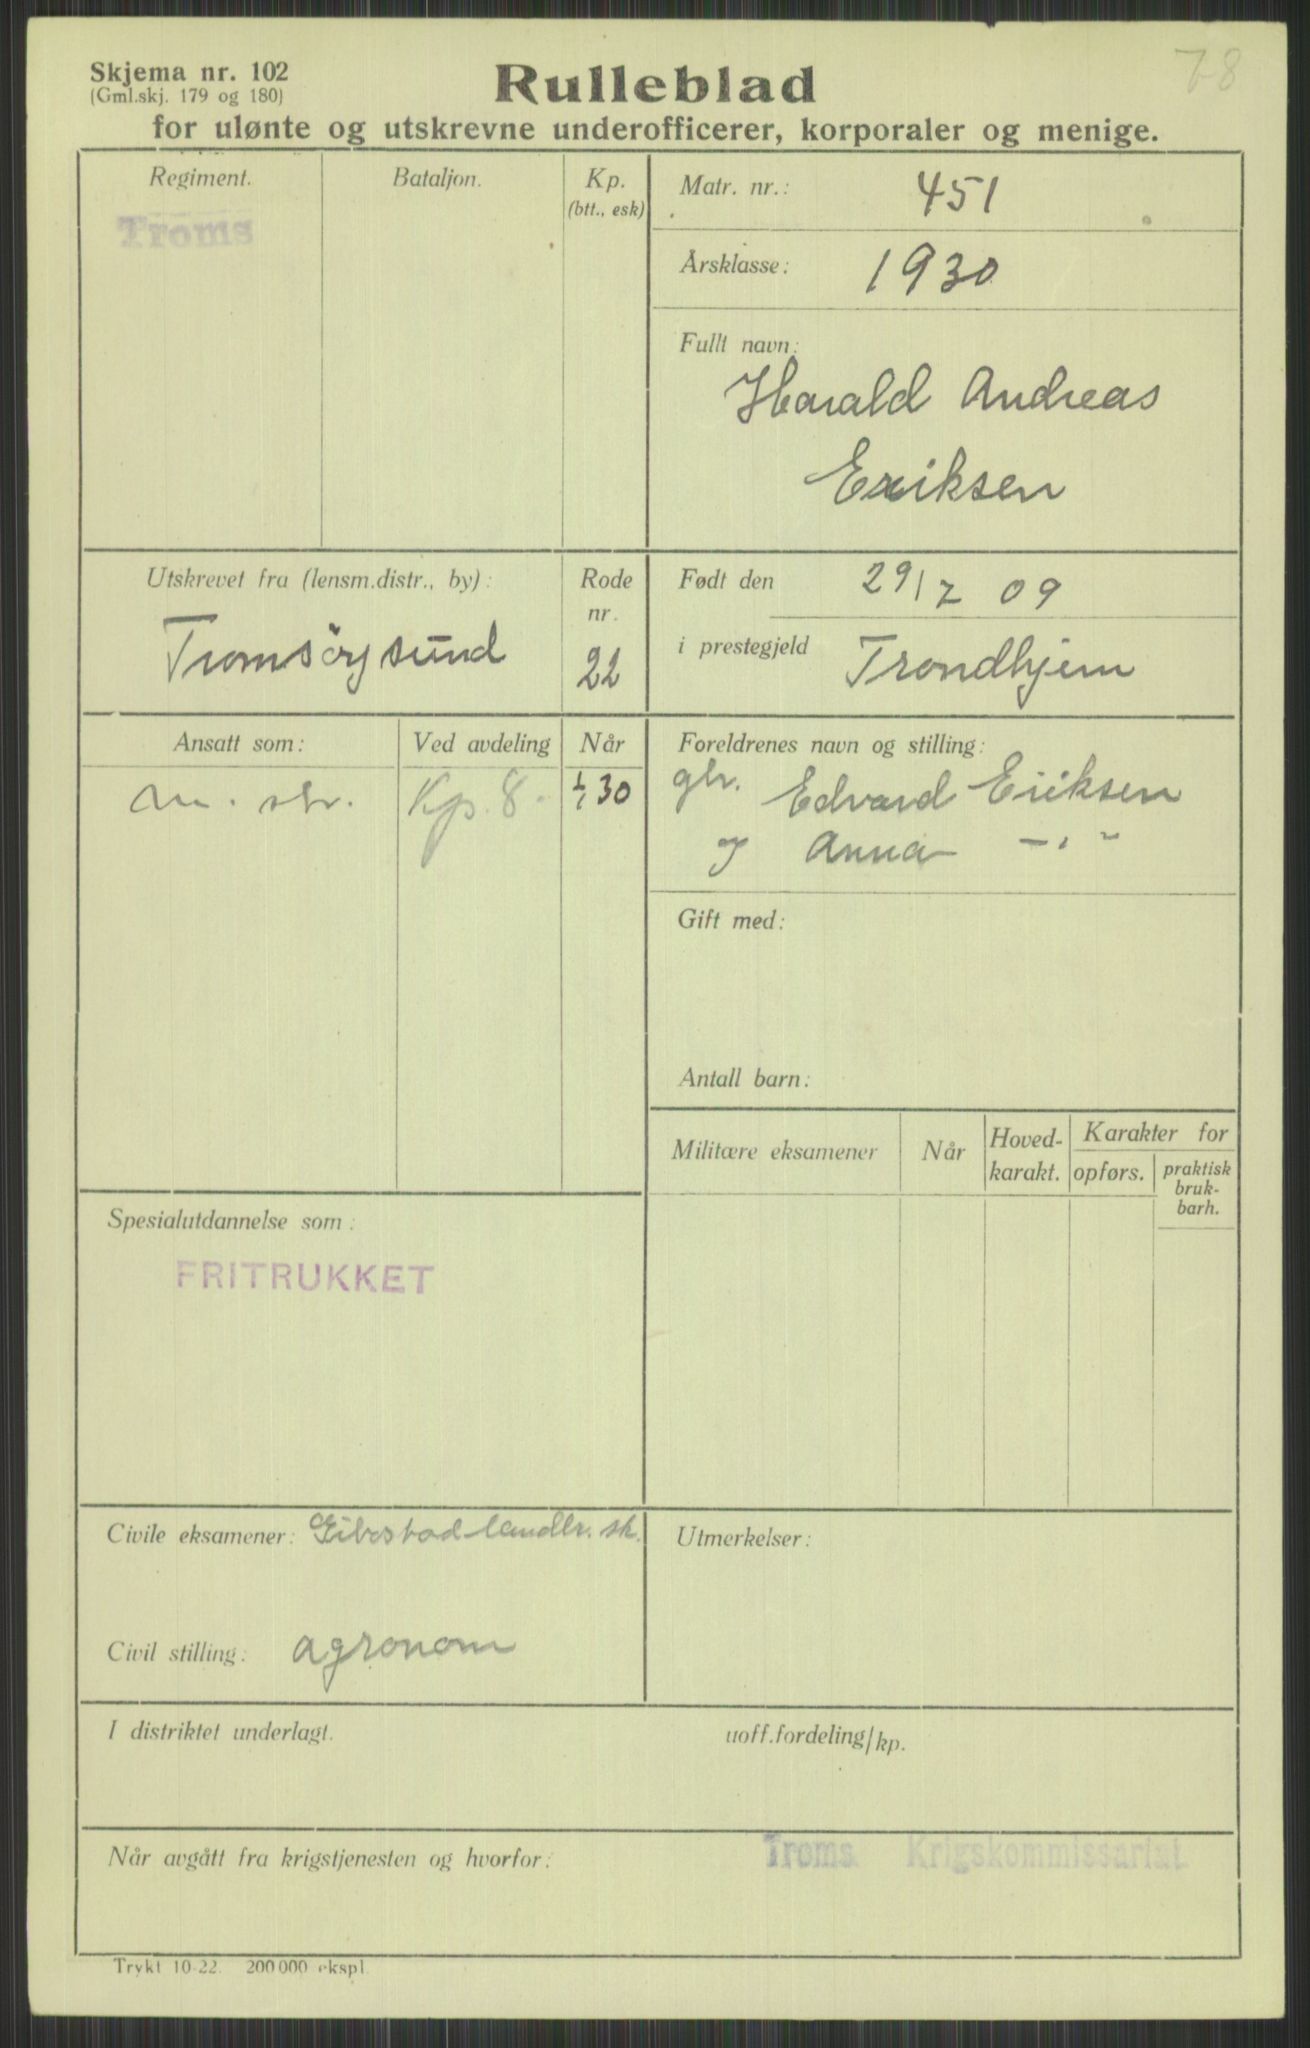 78
Skjema nr. 102
(Gml.skj. 179 og 180)
Rulleblad
for ulønte og utskrevne underofficerer, korporaler og menige.
Regiment.
Bataljon.
Kp.
(btt., esk)
Troms
Matr. nr.: 451
Årsklasse: 1930
Fullt navn:
Harald Andreas
Eriksen
Utskrevet fra (lensm.distr., by):
Tromsøysund
Rode
nr.
22
Født den 29/7 09
i prestegjeld Trondhjem
Ansatt som:
Ved avdeling
Når
Kp. 8.
1/1 30
Foreldrenes navn og stilling:
gbr. Edvard Eriksen
og Anna -"-
Gift med:
Antall barn:
Militære eksamener
Når
Hoved-
karakt.
Karakter for
opførs.
praktisk
bruk-
barh.
Spesialutdannelse som:
FRITRUKKET
Civile eksamener: Gibostad landbr. sk.
Utmerkelser:
Civil stilling: agronom
I distriktet underlagt.
uoff.fordeling/kp.
Når avgått fra krigstjenesten og hvorfor:
Troms Krigskommissariat
Trykt 10-22. 200 000 ekspl.